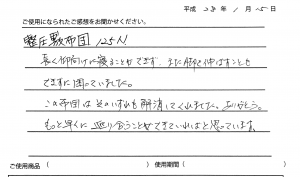 平成 28年 1月 25日
ご使用になられたご感想をお聞かせください。
整圧敷布団 125N
長く仰向けに寝ることができず、また脚を伸ばすことも
できずに困っていました。
この布団はそのいずれも解消してくれました。ありがとう。
もっと早くに巡り会うことができていればと思っています。
ご使用商品( ) ご使用期間( )